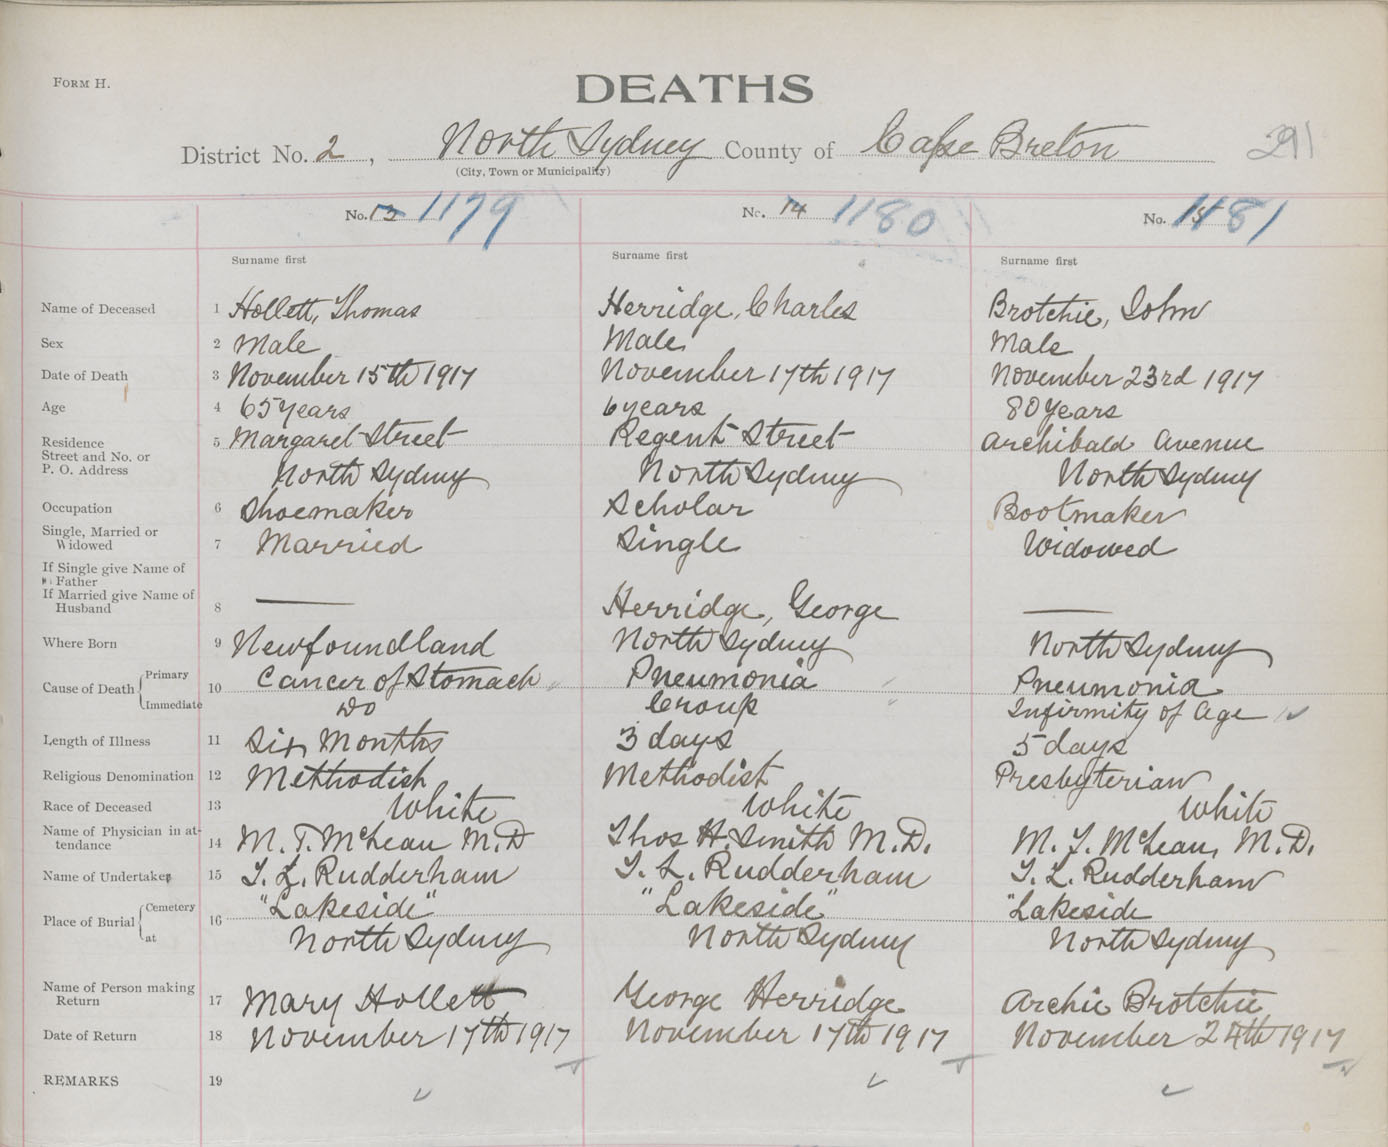 FORM H.
DEATHS
District No. 2, North Sydney County of Cape Breton 291
(City, Town or Municipality)
No. 1179
No. 14 1180
No. 1181
Surname first
Surname first
Surname first
Name of Deceased 1 Hollett, Thomas Herridge, Charles Brotchie, John
Sex 2 Male Male Male
Date of Death 3 November 15th 1917 November 17th 1917 November 23rd 1917
Age 4 65 years 6 years 80 Years
Residence 5 Margaret Street Regent Street Archibald Avenue
Street and No. or
P. O. Address North Sydney North Sydney North Sydney
Occupation 6 Shoemaker Scholar Bootmaker
Single, Married or
Widowed 7 Married Single Widowed
If Single give Name of
Father
If Married give Name of
Husband 8 — Herridge, George —
Where Born 9 Newfoundland North Sydney North Sydney
Cause of Death Primary 10 Cancer of Stomach Pneumonia Pneumonia
Immediate Do Croup Infirmity of Age
Length of Illness 11 Six Months 3 days 5 days
Religious Denomination 12 Methodist Methodist Presbyterian
Race of Deceased 13 White White White
Name of Physician in at-
tendance 14 M. T. McLean M.D Thos H. Smith M.D. M. T. McLean, M.D.
Name of Undertaker 15 T. L. Rudderham T. L. Rudderham T. L. Rudderham
Place of Burial Cemetery 16 "Lakeside" "Lakeside" "Lakeside
at North Sydney North Sydney North Sydney
Name of Person making
Return 17 Mary Hollett George Herridge Archie Brotchie
Date of Return 18 November 17th 1917 November 17th 1917 November 24th 1917
REMARKS 19